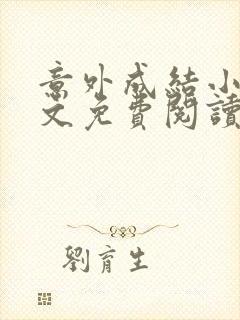 意外成結小
文免費閱讀
劉育生